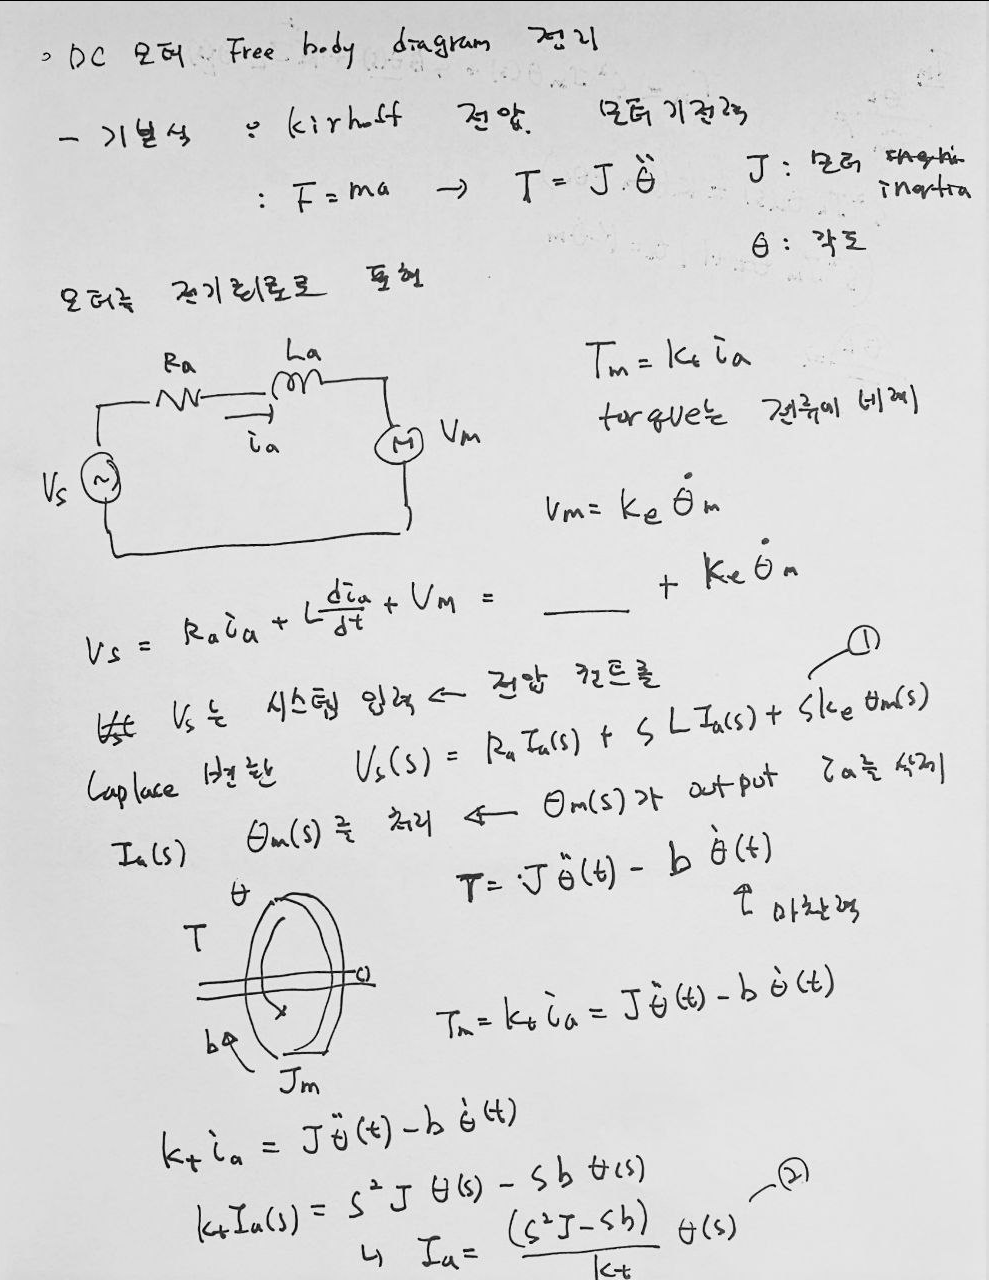 ◦ DC 모터 Free body diagram 정리
- 기본식 : kirhoff 전압. 모터 기전력
: F = ma → T = J θ̈ J : 모터 inertia
θ : 각도
모터를 전기회로로 표현
Ra La
ia
Vs M Vm
Tm = kt ia
torque는 전류에 비례
Vm = ke θ̇m
Vs = Ra ia + L dia/dt + Vm = ____ + ke θ̇m
Vs 는 시스템 입력 ← 전압 컨트롤
①
Laplace 변환 Vs(s) = Ra Ia(s) + s L Ia(s) + s ke θm(s)
Ia(s) θm(s)를 처리 ← θm(s)가 output ia를 삭제
T = J θ̈(t) - b θ̇(t)
↑ 마찰력
θ
T
b
Jm
Tm = kt ia = J θ̈(t) - b θ̇(t)
kt ia = J θ̈(t) - b θ̇(t)
kt Ia(s) = s² J θ(s) - s b θ(s)
↳ Ia = (s²J - sb)/kt θ(s) ②